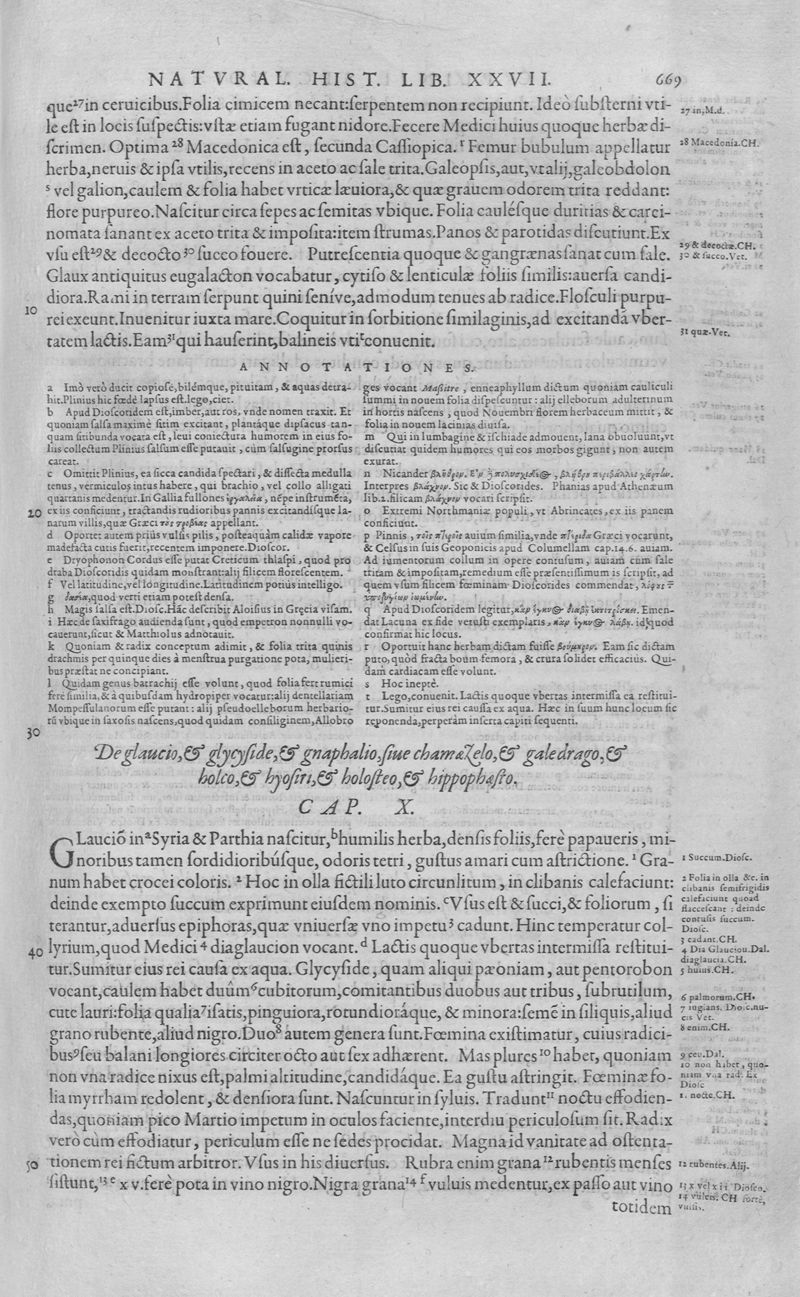 NATVRAL. HIST. LIB. XXVII. 669
que27in ceruicibus.Folia cimicem necant:ſerpentem non recipiunt. Ideò ſubſterni vti-
le eſt in locis ſuſpectis:vſtæ etiam fugant nidore.Fecere Medici huius quoque herbæ di-
ſcrimen. Optima 28 Macedonica eſt, ſecunda Caſſiopica. r Femur bubulum appellatur
herba,neruis & ipſa vtilis,recens in aceto ac ſale trita.Galeopſis,aut,vt alij,galeobdolon
s vel galion,caulem & folia habet vrticæ læuiora,& quæ grauem odorem trita reddant:
flore purpureo.Naſcitur circa ſepes ac ſemitas vbique. Folia cauléſque duritias & carci-
nomata ſanant ex aceto trita & impoſita:item ſtrumas.Panos & parotidas diſcutiunt.Ex
vſu eſt29& decocto30 ſucco fouere. Putreſcentia quoque & gangrænas ſanat cum ſale.
Glaux antiquitus eugalacton vocabatur, cytiſo & lenticulæ foliis ſimilis:auerſa candi-
diora.Rami in terram ſerpunt quini ſeníve,admodum tenues ab radice.Floſculi purpu-
10 rei exeunt.Inuenitur iuxta mare.Coquitur in ſorbitione ſimilaginis,ad excitandā vber-
tatem lactis.Eam31qui hauſerint,balineis vtitconuenit.
27 in,M.d.
28 Macedonia.CH.
29 & decoctæ.CH.
30 & ſucco.Vet.
31 quæ.Vet.
ANNOTATIONES.
a Imò verò ducit copioſe,bilémque, pituitam, & aquas detra-
hit.Plinius hic fœdè lapſus eſt.lego,ciet.
b Apud Dioſcoridem eſt,imber,aut ros, vnde nomen traxit. Et
quoniam ſalſa maximè ſitim excitant, plantáque dipſacus tan-
quam ſitibunda vocata eſt, leui coniectura humorem in eius fo-
liis collectum Plinius ſalſum eſſe putauit, cùm ſalſugine prorſus
careat.
c Omittit Plinius, ea ſicca candida ſpectari, & diſſecta medulla
tenus, vermiculos intus habere, qui brachio, vel collo alligati
quartanis medentur.In Gallia fullones
20 ex iis conficiunt, tractandis rudioribus pannis excitandíſque la-
narum villis,quæ Græci appellant.
d Oportet autem priùs vulſis pilis, poſteaquàm calidæ vapore
madefacta cutis fuerit,recentem imponere.Dioſcor.
e Dryophonon Cordus eſſe putat Creticum thlaſpi, quod pro
draba Dioſcoridis quidam monſtrant:alij filicem floreſcentem.
f Vel latitudine,vel longitudine.Latitudinem potiùs intelligo.
g quod verti etiam poteſt denſa.
h Magis ſalſa eſt.Dioſc.Hāc deſcribit Aloiſius in Gręcia viſam.
i Hæc de ſaxifrago audienda ſunt, quod empetron nonnulli vo-
cauerunt,ſicut & Matthiolus adnotauit.
k Quoniam & radix conceptum adimit, & folia trita quinis
drachmis per quinque dies à menſtrua purgatione pota, mulieri-
bus præſtat ne concipiant.
l Quidam genus batrachij eſſe volunt, quod folia fert rumici
ferè ſimilia,& à quibuſdam hydropiper vocatur:alij dentellariam
Mompeſſulanorum eſſe putant: alij pſeudoelleborum herbario-
rū vbique in ſaxoſis naſcens,quod quidam conſiliginem,Allobro
30
ges vocant Maſſitre, enneaphyllum dictum quoniam cauliculi
ſummi in nouem folia diſpeſcuntur: alij elleborum adulterinum
in hortis naſcens, quod Nouembri florem herbaceum mittit, &
folia in nouem lacinias diuiſa.
m Qui in lumbagine & iſchiade admouent, lana obuoluunt,vt
diſcutiat quidem humores qui eos morbos gignunt, non autem
exurat.
n Nicander
Interpres βλάχνον. Sic & Dioſcorides. Phanias apud Athenæum
lib.2.filicem βλάχνον vocari ſcripſit.
o Extremi Northmaniæ populi, vt Abrincates, ex iis panem
conficiunt.
p Pinnis, auium ſimilia,vnde Græci vocarunt,
& Celſus in ſuis Geoponicis apud Columellam cap.14.6. auiam.
Ad iumentorum collum in opere contuſum, auiam cùm ſale
tritam & impoſitam,remedium eſſe præſentiſſimum is ſcripſit, ad
quem vſum filicem fœminam Dioſcorides commendat,
q Apud Dioſcoridem legitur, Emen-
dat Lacuna ex fide vetuſti exemplaris, idquod
confirmat hic locus.
r Oportuit hanc herbam dictam fuiſſe Eam ſic dictam
puto,quòd fracta boum femora, & crura ſolidet efficacius. Qui-
dam cardiacam eſſe volunt.
s Hoc ineptè.
t Lego,conuenit. Lactis quoque vbertas intermiſſa ea reſtitui-
tur.Sumitur eius rei cauſſa ex aqua. Hæc in ſuum hunc locum ſic
reponenda,perperàm inſerta capiti ſequenti.
De glaucio,& glycyſide,& gnaphalio,ſiue chamæzelo,& galedrago,&
holco,& hyoſiri,& holoſteo,& hippophæſto.
CAP. X.
GLauciō in aSyria & Parthia naſcitur,bhumilis herba,denſis foliis,ferè papaueris, mi-
noribus tamen ſordidioribúſque, odoris tetri, guſtus amari cum aſtrictione. 1 Gra-
num habet crocei coloris. 2 Hoc in olla fictili luto circunlitum, in clibanis calefaciunt:
deinde exempto ſuccum exprimunt eiuſdem nominis. cVſus eſt & ſucci,& foliorum, ſi
terantur,aduerſus epiphoras,quæ vniuerſæ vno impetu3 cadunt. Hinc temperatur col-
40 lyrium,quod Medici 4 diaglaucion vocant. d Lactis quoque vbertas intermiſſa reſtitui-
tur.Sumitur eius rei cauſa ex aqua. Glycyſide, quam aliqui pæoniam, aut pentorobon
vocant,caulem habet duûm6cubitorum,comitantibus duobus aut tribus, ſubrutilum,
cute lauri:folia qualia7iſatis,pinguiora,rotundioráque, & minora:ſemē in ſiliquis,aliud
grano rubente,aliud nigro.Duo8 autem genera ſunt.Fœmina exiſtimatur, cuius radici-
bus9ſeu balani longiores circiter octo aut ſex adhærent. Mas plures10 habet, quoniam
non vna radice nixus eſt,palmi altitudine,candidáque. Ea guſtu aſtringit. Fœminæ fo-
lia myrrham redolent, & denſiora ſunt. Naſcuntur in ſyluis. Tradunt11 noctu effodien-
das,quoniam pico Martio impetum in oculos faciente,interdiu periculoſum ſit.Radix
verò cùm effodiatur, periculum eſſe ne ſedes procidat. Magna id vanitate ad oſtenta-
50 tionem rei fictum arbitror. Vſus in his diuerſus. Rubra enim grana12rubentis menſes
ſiſtunt,13 e x v.ferè pota in vino nigro.Nigra grana14 f vuluis medentur,ex paſſo aut vino
totidem
1 Succum.Dioſc.
2 Folia in olla &c. in
clibanis ſemifrigidis
calefaciunt quoad
flacceſcant : deinde
contuſis ſuccum.
Dioſc.
3 cadant.CH.
4 Dia Glauciou.Dal.
diaglaucia.CH.
5 huius.CH.
6 palmorum.CH.
7 iuglans. Dioſc.nu-
cis Vet.
8 enim.CH.
9 ceu.Dal.
10 non habet, quo-
niam vna rad. Ex
Dioſc
11 nocte.CH.
12 rubentes.Alij.
13 x vel xii Dioſco.
14 vulsis. CH forte,
vulſis.